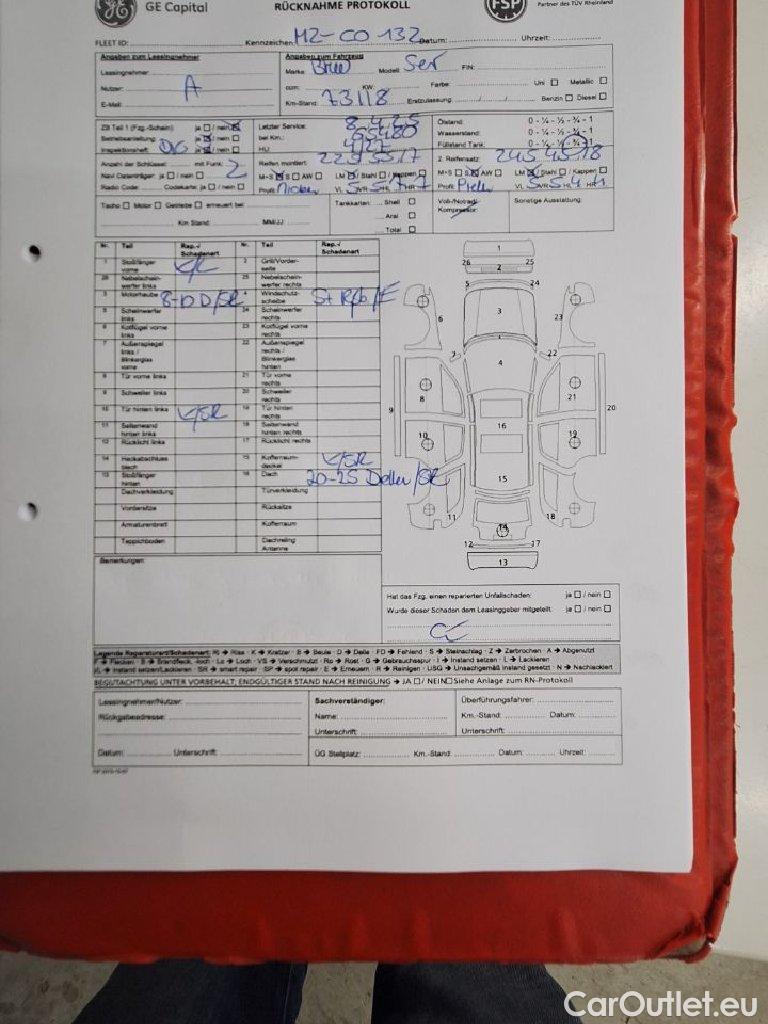 GE Capital
RÜCKNAHME PROTOKOLL
FSP
Partner des TÜV Rheinland
FLEET ID: Kennzeichen: MZ-CO 132 Datum: Uhrzeit:
Angaben zum Leasingnehmer
Leasingnehmer:
Nutzer: A
E-Mail:
Angaben zum Fahrzeug
Marke: BMW Modell: 5er FIN:
ccm: KW: Farbe: Uni Metallic
Km-Stand: 73118 Erstzulassung: / / Benzin Diesel
ZB Teil 1 (Fzg.-Schein) ja / nein
Betriebsanleitung: ja / nein
Inspektionsheft: DIG ja / nein
Anzahl der Schlüssel: mit Funk: 2
Navi Datenträger: ja / nein
Radio Code: Codekarte: ja / nein
Letzter Service: 8.4.25
bei Km.: 55480
HU: 4/27
Ölstand: 0 - ¼ - ½ - ¾ - 1
Wasserstand: 0 - ¼ - ½ - ¾ - 1
Füllstand Tank: 0 - ¼ - ½ - ¾ - 1
Reifen montiert: 225 55 17
M+S S AW LM / Stahl / Kappen
2. Reifensatz: 245 45 18
M+S S AW LM / Stahl / Kappen
Tacho Motor Getriebe erneuert bei
Km Stand: MM/JJ
Tankkarten: Shell
Aral
Total
Voll-/Notrad/
Kompressor:
Sonstige Ausstattung:
Nr. Teil Rep.-/ Schadenart Nr. Teil Rep.-/ Schadenart
1 Stoßfänger vorne K/L 2 Grill/Vorderseite
26 Nebelscheinwerfer links 25 Nebelscheinwerfer rechts
3 Motorhaube 8-10 D/SR 4 Windschutzscheibe
5 Scheinwerfer links 24 Scheinwerfer rechts
6 Kotflügel vorne links 23 Kotflügel vorne rechts
7 Außenspiegel links / Blinkerglas 22 Außenspiegel rechts / Blinkerglas
8 Tür vorne links 21 Tür vorne rechts
9 Schweller links 20 Schweller rechts
10 Tür hinten links K/SR 19 Tür hinten rechts
11 Seitenwand hinten links 18 Seitenwand hinten rechts
12 Rücklicht links 17 Rücklicht rechts
14 Heckabschlussblech 15 Kofferraumdeckel K/SR
13 Stoßfänger hinten 16 Dach 20-25 Dellen/SR
Dachverkleidung Türverkleidung
Vordersitze Rücksitze
Armaturenbrett Kofferraum
Teppichboden Dachreling Antenne
1
26 25
2
5 24
6 3 23
7 4 22
8 21
9 20
10 16 19
15
11 14 18
12 17
13
Bemerkungen:
Hat das Fzg. einen reparierten Unfallschaden: ja / nein
Wurde dieser Schaden dem Leasinggeber mitgeteilt: ja / nein
Legende Reparaturart/Schadenart: RI → Riss - K → Kratzer - B → Beule - D → Delle - FD → Fehlend - S → Steinschlag - Z → Zerbrochen - A → Abgenutzt
F → Flecken - B → Brandfleck, -loch - Lo → Loch - VS → Verschmutzt - Ro → Rost - G → Gebrauchsspur - I → Instand setzen - L → Lackieren
IL → Instand setzen/Lackieren - SR → smart repair - SP → spot repair - E → Erneuern - R → Reinigen - USG → Unsachgemäß instand gesetzt - N → Nachlackiert
BEGUTACHTUNG UNTER VORBEHALT; ENDGÜLTIGER STAND NACH REINIGUNG → JA / NEIN Siehe Anlage zum RN-Protokoll
Leasingnehmer/Nutzer:
Rückgabeadresse:
Datum: Unterschrift:
Sachverständiger:
Name:
Unterschrift:
Überführungsfahrer:
Km.-Stand: Datum:
Unterschrift:
ÜG Stellplatz: Km.-Stand: Datum: Uhrzeit:
CarOutlet.eu